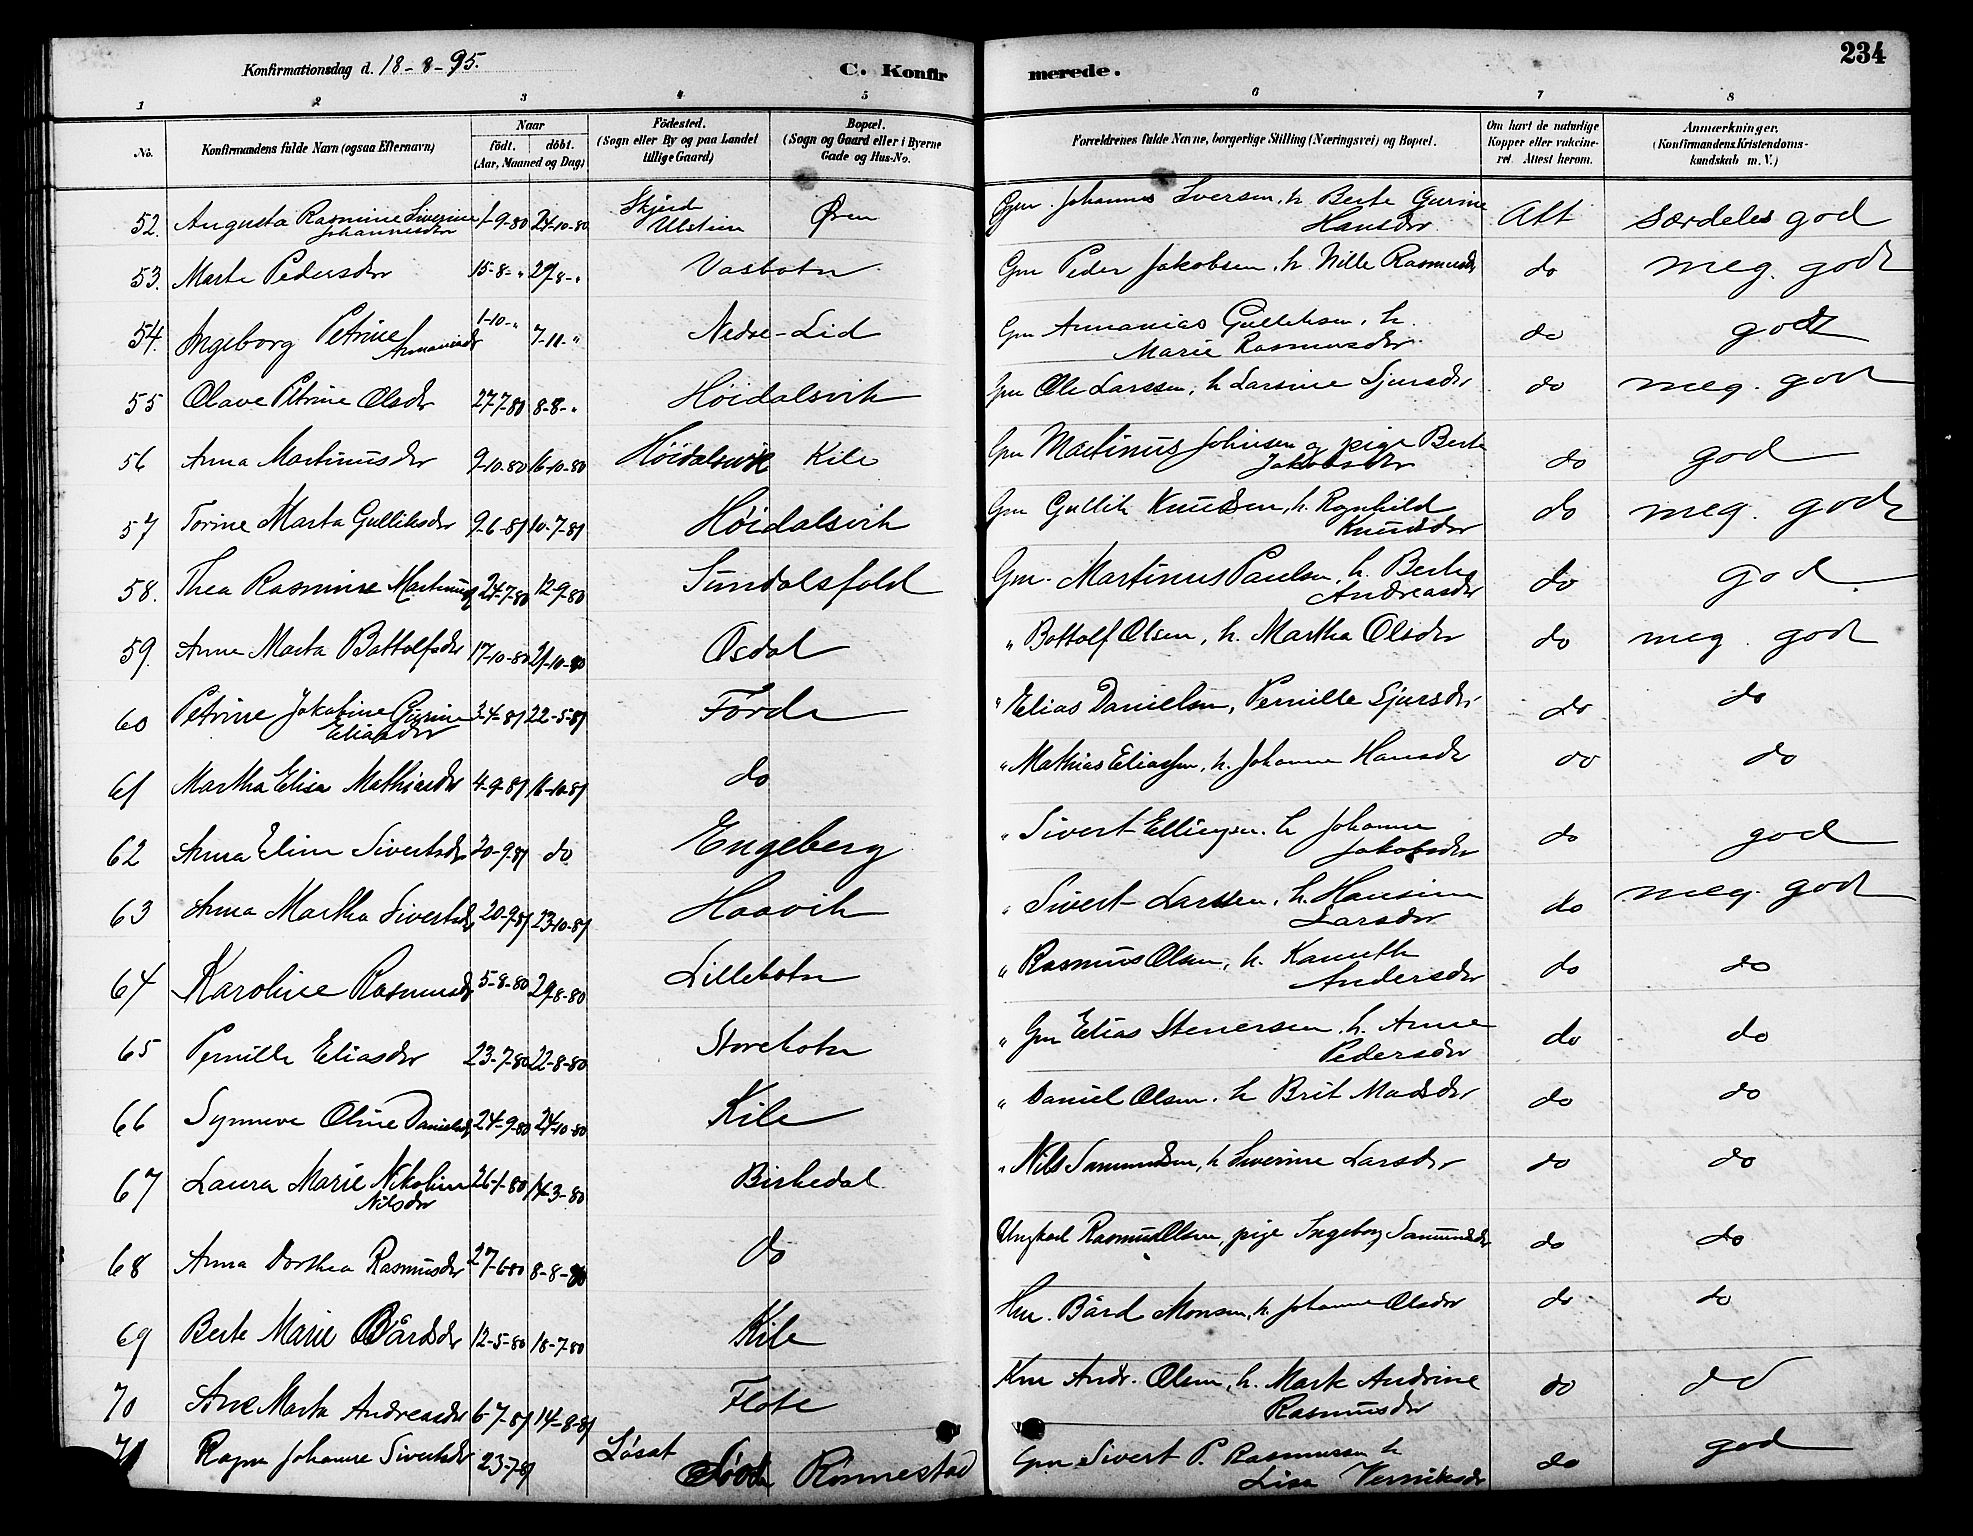 234
Konfirmationsdag d. 18-8-95.
C. Konfir
merede.
1 2 3 4 5 6 7 8
No.
Konfirmandens fulde Navn (ogsaa Efternavn)
Naar
födt. döbt.
(Aar, Maaned og Dag)
Födested.
(Sogn eller By og paa Landet
tillige Gaard)
Bopæl.
(Sogn og Gaard eller i Byerne
Gade og Hus-No.
Forældrenes fulde Navne, borgerlige Stilling (Næringsvei) og Bopæl.
Om havt de naturlige
Kopper eller vakcine-
ret. Attest herom.
Anmærkninger.
(Konfirmandens Kristendoms-
kundskab m. V.)
52. Augusta Rasmine Siverine Johannesdr 1-9-80 24-10-80 Ulstein Øren Gm. Johannes Iversen, h. Berte Gurine Hansdr Att Særdeles god
53. Marte Pedersdr 15-8-" 29-8-" Vasbotn Gm Peder Jakobsen, h. Nille Rasmusdr do meg. god
54. Ingeborg Petrine Annaniasdr 1-10-" 7-11-" Nedre-Lid Gm Annanias Gulliksen, h. Marie Rasmusdr. do god
55 Olave Petrine Olsdr 27-7-80 8-8-" Höidalsvik Gm Ole Larssen, h Larsine Sjursdr do meg. god
56 Anna Martinusdr 9-10-80 16-10-80 Höidalsvik Kile Gm Martinus Johnsen og pige Berte Jakobsdr do god
57 Torine Marta Gulliksdr 9-6-81 10-7-81 Höidalsvik Gm Gullik Knudsen, h. Ragnhild Knudsdr do meg. god
58. Thea Rasmine Martinusdr 24-7-80 12-9-80 Sundalsfold Gm. Martinus Paulsen, h. Berte Andreasdr do god
59. Anne Marta Bottolfsdr 17-10-80 21-10-80 Osdal " Bottolf Olsen, h. Martha Olsdr do meg god
60 Petrine Jakobine Gurine Eliasdr 3-4-81 22-5-81 Förde " Elias Danielsen, Pernille Sjursdr do do
61 Martha Elisa Mathiasdr 4-9-81 16-10-81 do " Mathias Eliassen, h. Johanne Hansdr do do
62 Anna Eline Sivertsdr 20-9-81 do Engeberg " Sivert Ellingsen. h Johanne Jakobsdr do god
63 Anna Martha Sivertsdr 20-9-81 23-10-81 Haavik " Sivert Larssen, h. Hansine Larsdr do meg. god
64 Karoline Rasmusdr 5-8-80 29-8-80 Lillebotn " Rasmus Olsen, h. Andersdr do do
65 Pernille Eliasdr 23-7-80 22-8-80 Storebotn " Gm Elias Stenersen. h. Anne Pedersdr do do
66 Synneve Oline Danielsdr 24-9-80 24-10-80 Kile " Daniel Olsen. h Brit Madsdr do do
67 Laura Marie Nikoline Nilsdr 26-1-80 14-3-80 Birkedal " Nils Samundsen, h Siverine Larsdr do do
68 Anna Dorthea Rasmusdr 27-6-80 8-8-80 do Ungkarl Rasmus Olsen, pige Ingeborg Samundsdr do do
69 Berte Marie Bårdsdr 12-5-80 18-7-80 Kile Hm. Bård Monsen, h. Johanne Olsdr do do
70 Ane Marta Andreasdr 6-7-81 14-8-81 Flote Km Andr. Olsen, h. Marte Andrine Rasmusdr do do
71 Ragna Johanne Sivertsdr 23-7-81 Rönnestad Gm Sivert P. Rasmussen h Lisa do god